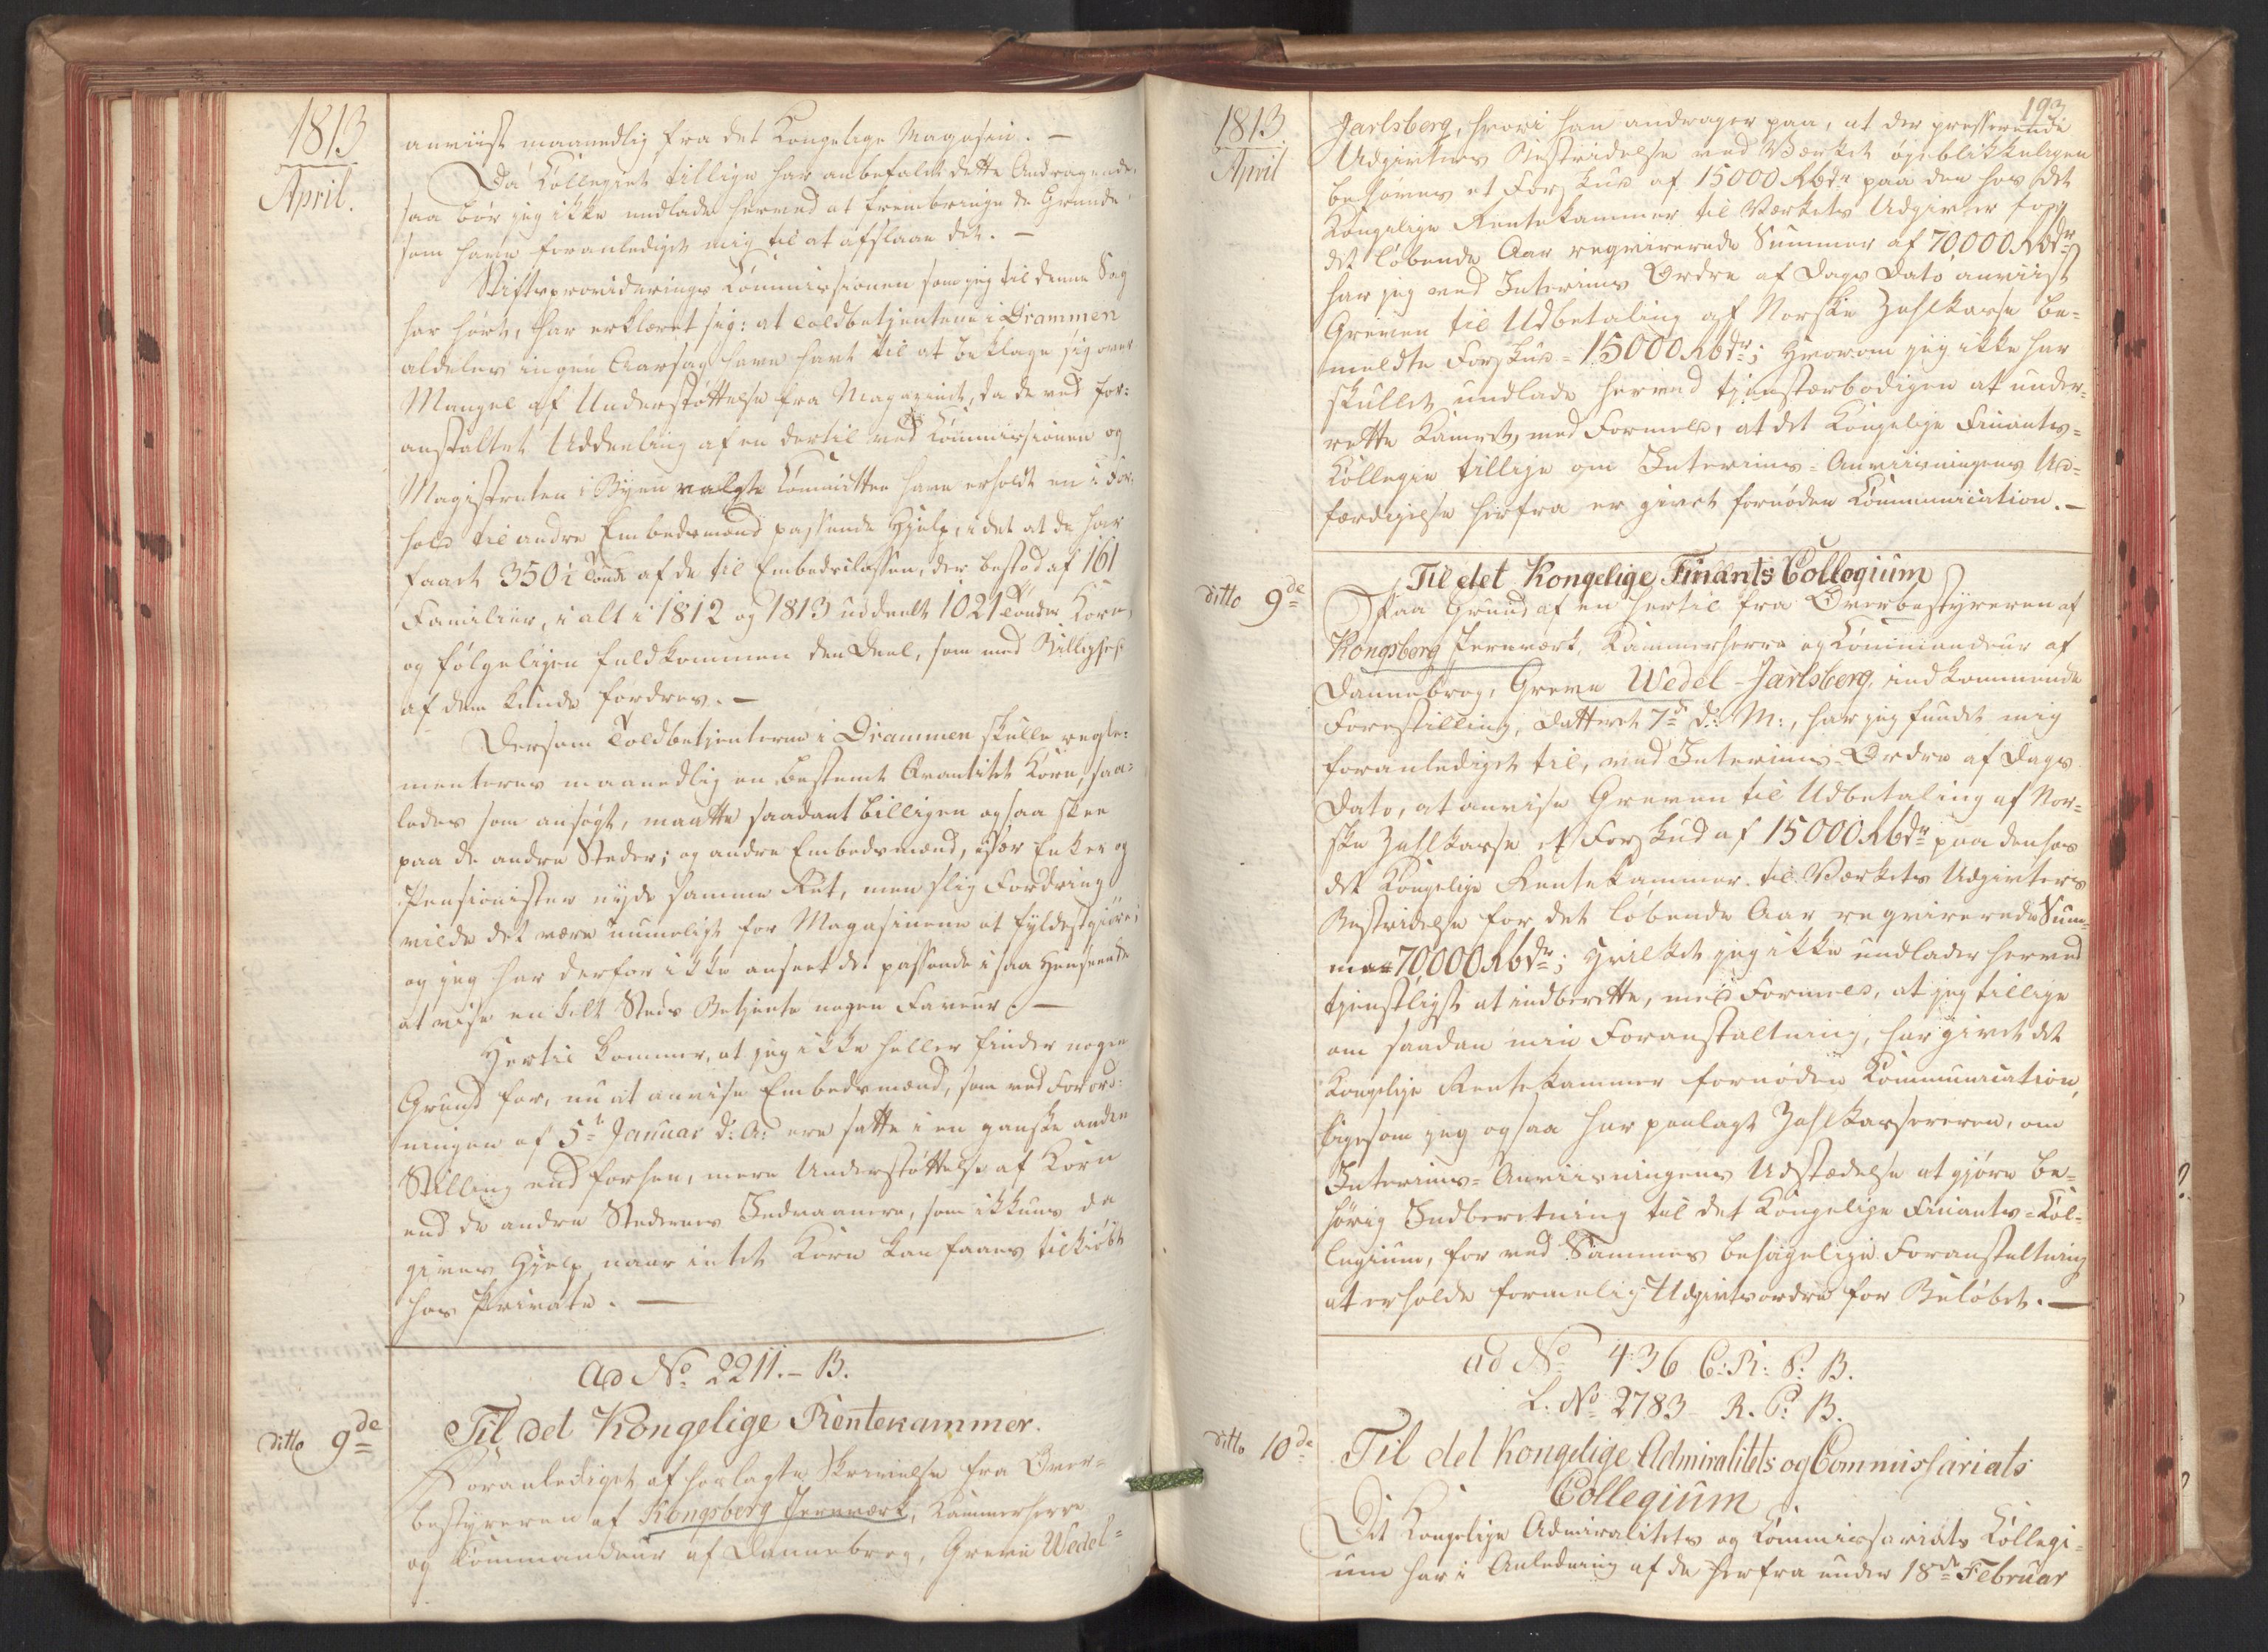 1813
April.
anviist maanedlig fra det Kongelige Magasin. —
Da Collegiet tillige har anbefalet dette Andragende,
saa bør jeg ikke undlade herved at frembringe de Grunde,
som have foranlediget mig til at afslaae det. —
Stiftsproviderings Commissionen som jeg til denne Sag
har hørt, har erklæret sig: at Toldbetjentene i Drammen
aldeles ingen Aarsag have havt til at beklage sig over
Mangel af Understøttelse fra Magazinet, da de ved for:
anstaltet Uddeeling af en dertil ved Commissionen og
Magistraten i Byen valgte Committee have erholdt en i For:
hold til andre Embedsmænd passende Hjelp, idet at de har
faaet 350½ Tønde af de til Embedsclassen, der bestod af 161
Familier, i alt i 1812 og 1813 uddeelte 1021 Tønder Korn,
og følgeligen fuldkommen den Deel, som med Billighed
af dem kunde fordres. —
Dersom Toldbetjenterne i Drammen skulle regle:
menteres maanedlig en bestemt Qvantitet Korn, saa:
ledes som ansøgt, maatte saadant billigen ogsaa skee
paa de andre Steder; og andre Embedsmænd, især Enker og
Pensionister nyde samme Ret, men slig Fordring
vilde det være umueligt for Magasinerne at fyldestgiøre;
og jeg har derfor ikke anseet det passende i saa Henseende
at vise enkelt Steds Betjente nogen Faveur. —
Hertil kommer, at jeg ikke heller finder nogen
Grund for, nu at anvise Embedsmænd, som ved Forord:
ningen af 5te Januar d: A: ere satte i en ganske anden
Stilling end forhen, mere Understøttelse af Korn
end de andre Stedernes Indvaanere, som ikkuns de
gives Hjelp, naar intet Korn kan faaes tilkiøbt
hos Private. —
ad No 2211.- B.
ditto 9de
Til det Kongelige Rentekammer.
Foranlediget af hoslagte Skrivelse fra Over=
bestyreren af Kongsberg Jernværk, Kammerherre
og Commandeur af Dannebrog, Greve Wedel=
193
1813.
April
Jarlsberg, hvori han andrager paa, at der presserende
Udgivters Bestridelse ved Værket øjeblikkeligen
behøves et Forskud af 15000 Rbdr paa den hos det
Kongelige Rentekammer til Værkets Udgivter for
det løbende Aar reqvirerede Summer af 70000 Rbdr
har jeg ved Interims Ordre af Dags Dato anviist
Greven til Udbetaling af Norske Zahlkasse be=
meldte Forskud = 15000 Rbdr; hvorom jeg ikke har
skullet undlade herved tjenstærbødigen at under=
rette Kamret, med Formeld, at det Kongelige Finants=
Collegie tillige om Interims=Anviisningens Ud=
færdigelse herfra er givet fornøden Communication. —
Til det Kongelige Finants Collegium
ditto 9de
Paa Grund af en hertil fra Overbestyreren af
Kongsberg Jernværk, Kammerherre og Commandeur af
Dannebrog, Greve Wedel-Jarlsberg, indkommende
Forestilling, datteret 7de d: M:, har jeg fundet mig
foranlediget til, ved Interims=Ordre af Dags
Dato, at anvise Greven til Udbetaling af Nor=
ske Zahlkasse et Forskud af 15000 Rbdr paa den hos
det Kongelige Rentekammer til Værkets Udgivters
Bestridelse for det løbende Aar reqvirerede Sum=
ma 70000 Rbdr; hvilket jeg ikke undlader herved
tjenstligst at indberette, med Formeld, at jeg tillige
om saadan min Foranstaltning, har givet det
Kongelige Rentekammer fornøden Kommunication,
ligesom jeg ogsaa har paalagt Zahlkassereren, om
Interims=Anviisningens Udstædelse at gjøre be=
hørig Indberetning til det Kongelige Finants=Col=
legium, for ved Sammes behagelige Foranstaltning
at erholde formelig Udgivtsordre for Beløbet. —
ad No 436 C: R: P: B.
L. No 2783 R. C: B.
ditto 10de
Til det Kongelige Admiralitets og Commissariats
Collegium
Det Kongelige Admiralitets og Commissariats Collegi=
um har i Anledning af de herfra under 18de Februar